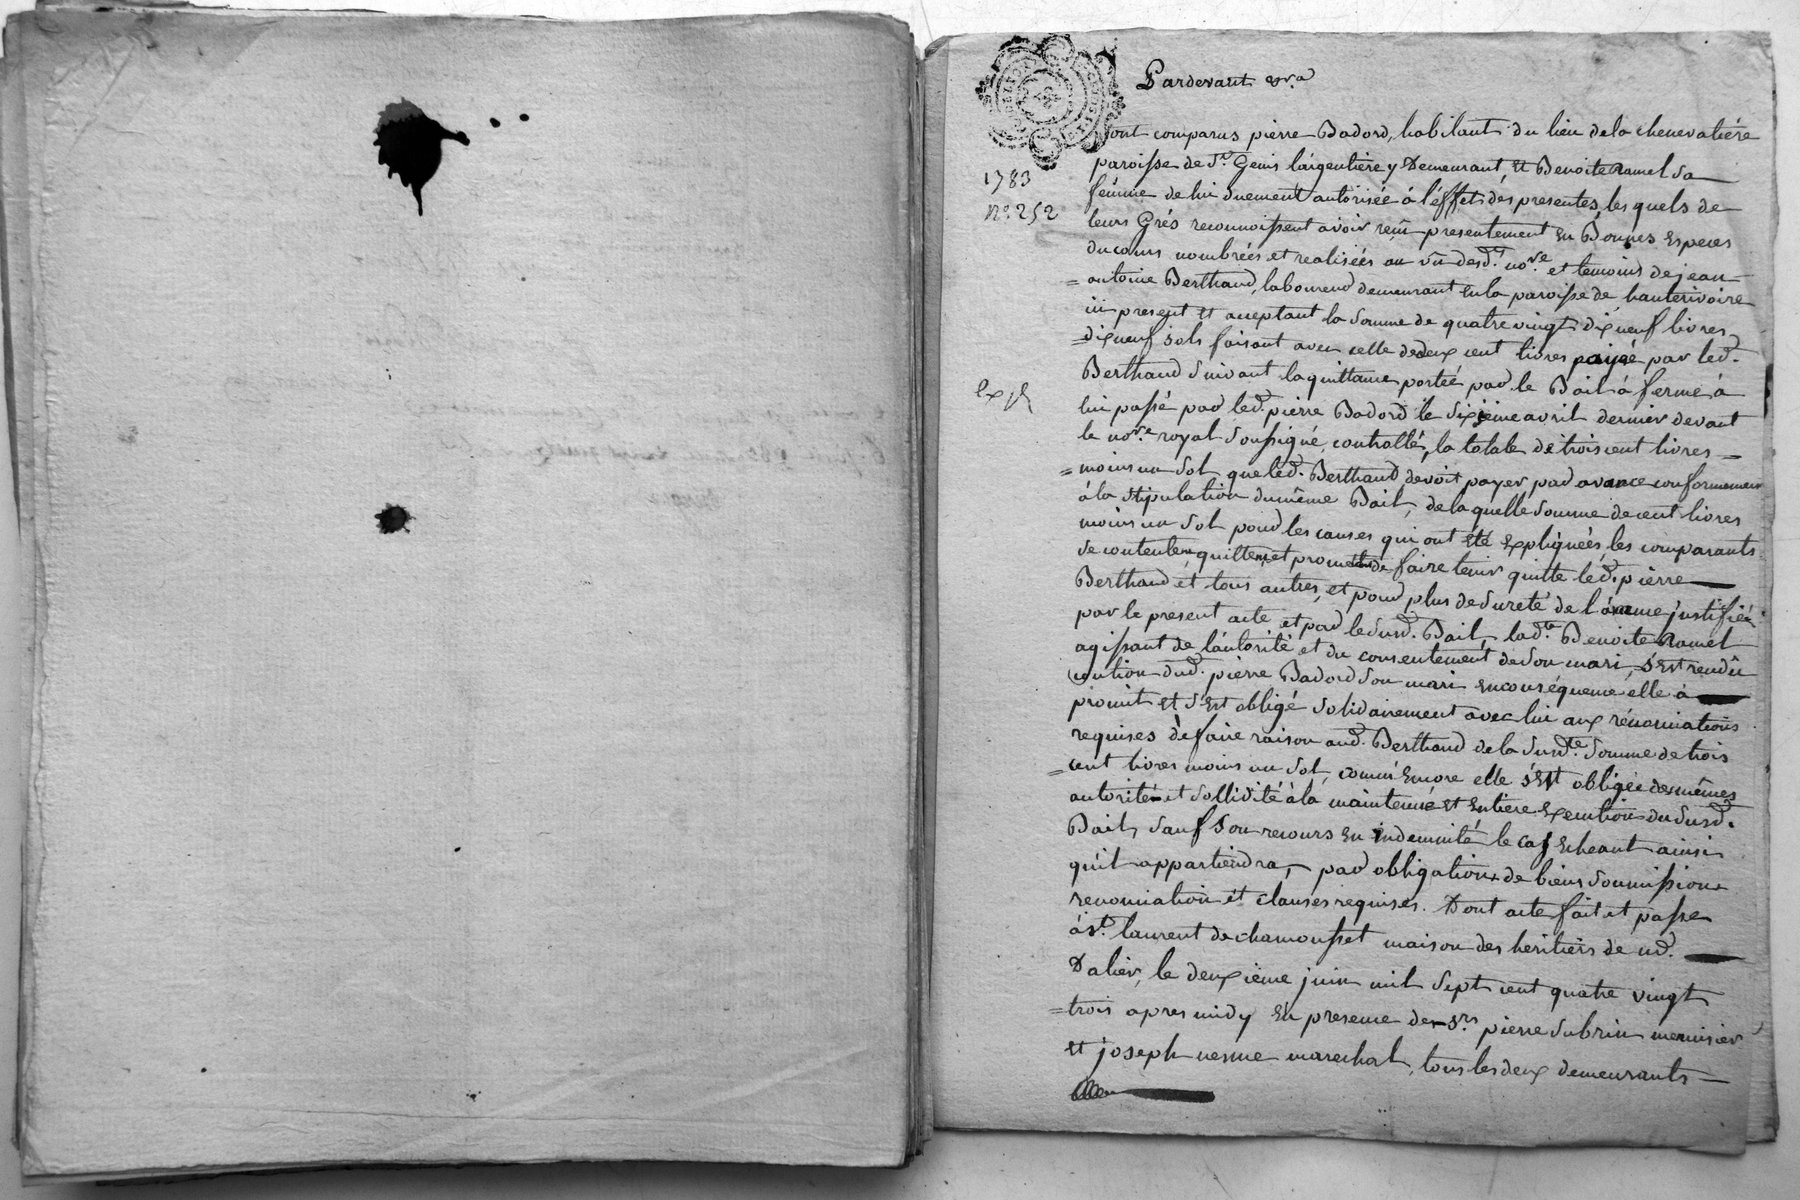 Pardevant &ra
1783
n° 252
exp
sont comparus pierre Badord, habitant du lieu de la chenevatiére
paroisse de St. Genis l'argentiere y Demeurant, et Benoite Ramel sa
femme de lui duement autorisée à l'éffet des presentes, les quels de
leurs Grés reconnoissent avoir reçu presentement en Bonnes especes
du cours nombrées et realisées au vû desdts. nore. et temoins de jean
= antoine Berthaud, laboureur demeurant en la paroisse de hauterivoire
ici present et acceptant la somme de quatre vingt dix neuf livres
= dixneuf sols faisant avec celle de deux cent livres payée par led.
Berthaud suivant la quittance portée par le Bail à ferme à
lui passé par led. pierre Badord le sixieme avril dernier devant
le nore. royal soussigné, controllé, la totale de trois cent livres
= moins un sol que led. Berthaud devoit payer par avance conformement
à la stipulation du même Bail, de laquelle somme de cent livres
moins un sol pour les causes qui ont eté expliquées, les comparants
se contentent, quittent et promettent de faire tenir quitte led. pierre
Berthaud et tous autres, et pour plus de sureté de l'avance justifiée
par le present acte et par le susd. Bail, ladte. Benoite Ramel
agissant de l'autorité et du consentement de son mari, s'est rendû
caution dud. pierre Badord son mari en conséquence elle à
promit et s'est obligé solidairement avec lui aux rénonciations
requises de faire raison aud. Berthaud de la susdte. somme de trois
= cent livres moins un sol, comm'encore elle s'est obligée des mêmes
autorité et sollidité à la maintenue et entiere execution du susd.
Bail, sauf son recours en indemnité le cas echeant ainsi
qu'il appartiendra, par obligation de biens soumission
renonciation et clauses requises. Dont acte fait et passe
à St. laurent de chamousset maison des heritiers de
Dalier, le deuxième juin mil sept cent quatre vingt
= trois apres midy en presence des srs. pierre subrin menuisier
et joseph nesme marechal, tous les deux demeurants